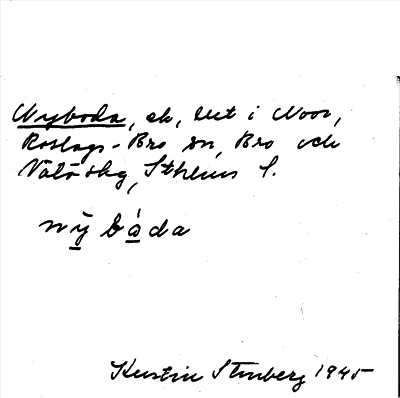 Nyboda, ek, del i Noor,
Roslags-Bro sn, Bro och
Vätö skg, Sthlms l.
nȳ bòda
Kerstin Stenberg 1945